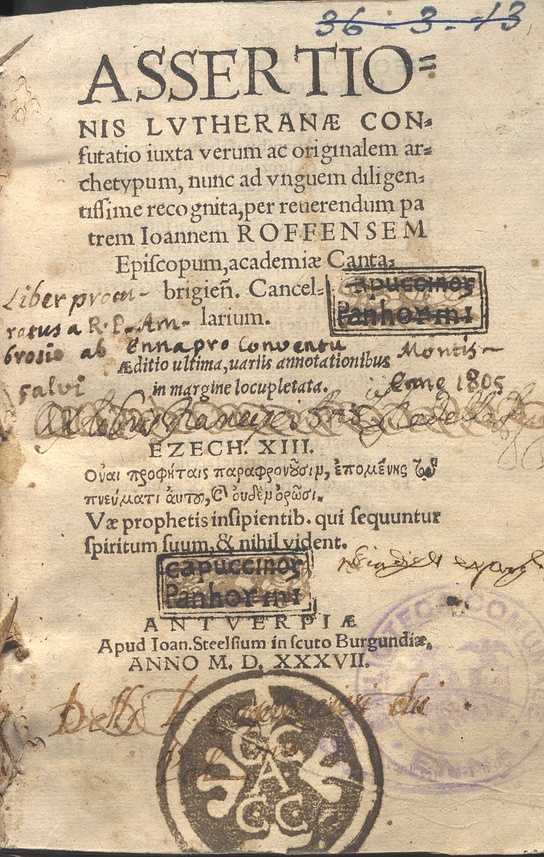 36-3-13
ASSERTIO=
NIS LVTHERANÆ CON=
futatio iuxta verum ac originalem ar=
chetypum, nunc ad vnguem diligen=
tissime recognita, per reuerendum pa
trem Ioannem ROFFENSEM
Episcopum, academiæ Canta=
brigieñ. Cancel=
larium.
capuccinor
Panhormi
Liber procu-
ratus a R. P. Am-
brosio ab Enna pro Conventu Montis-
salvi
Æditio ultima, uariis annotationibus
in margine locupletata.
1805
EZECH. XIII.
Οὐαι προφήταις παραφρονοῦσιν, ἑπομένης τῷ
πνεύματι αυτου, ϗ ουδὲμ ὁρῶσι.
Væ prophetis insipientib. qui sequuntur
spiritum suum, & nihil vident.
capuccinor
Panhormi
ANTVERPIÆ
Apud Ioan. Steelsium in scuto Burgundiæ,
ANNO M. D. XXXVII.
CC
A
CC